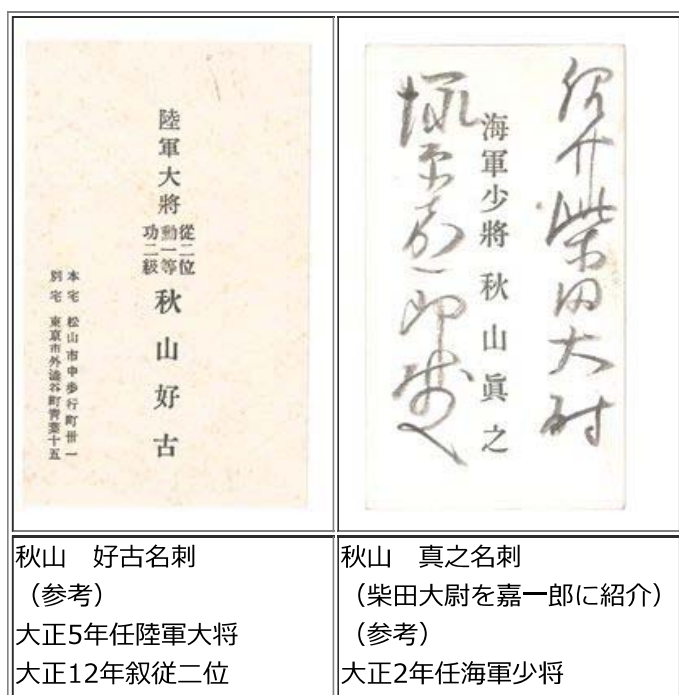 陸軍大將
從二位
勳一等
功二級
秋山好古
本宅 松山市中歩行町丗一
別宅 東京市外澁谷町青葉十五
紹介柴田大尉
海軍少將 秋山眞之
塚原嘉一郎殿
秋山 好古名刺
（参考）
大正5年任陸軍大将
大正12年叙従二位
秋山 真之名刺
（柴田大尉を嘉一郎に紹介）
（参考）
大正2年任海軍少将